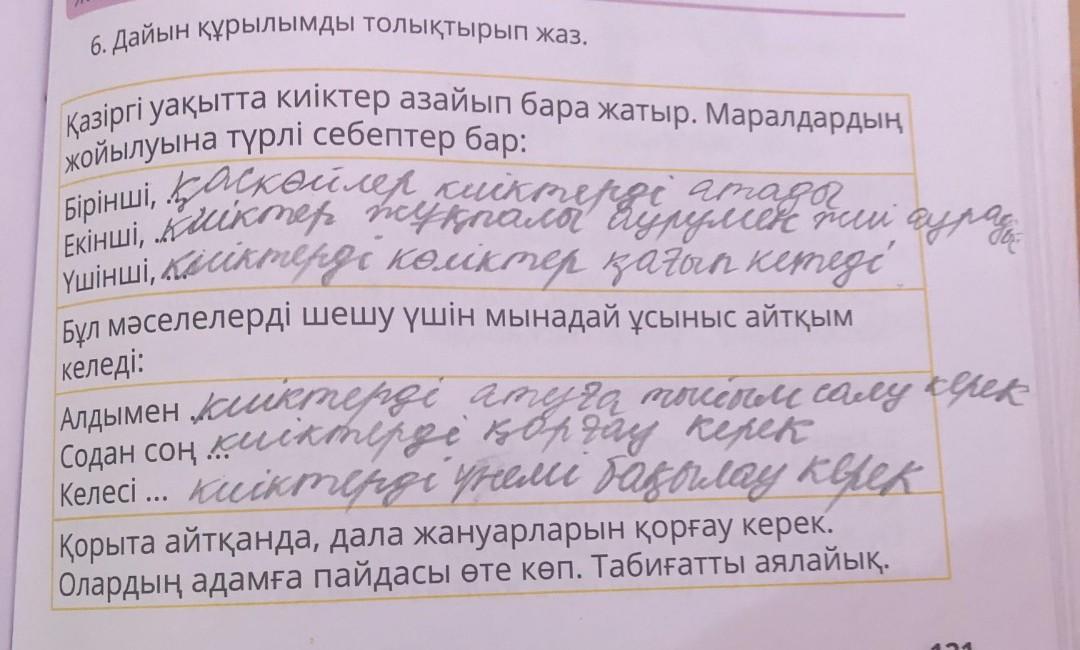 6. Дайын құрылымды толықтырып жаз.
Қазіргі уақытта киіктер азайып бара жатыр. Маралдардың
жойылуына түрлі себептер бар:
Бірінші, ... қаскөйлер киіктерді атады
Екінші, ... киіктер жұқпалы аурумен жиі аурады
Үшінші, ... киіктерді көліктер қағып кетеді
Бұл мәселелерді шешу үшін мынадай ұсыныс айтқым
келеді:
Алдымен ... киіктерді атуға тыйым салу керек
Содан соң ... киіктерді қорғау керек
Келесі ... киіктерді үнемі бақылау керек
Қорыта айтқанда, дала жануарларын қорғау керек.
Олардың адамға пайдасы өте көп. Табиғатты аялайық.